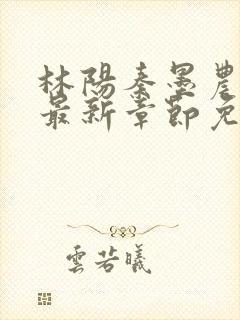 林陽秦墨農
最新章節免
雲若曦